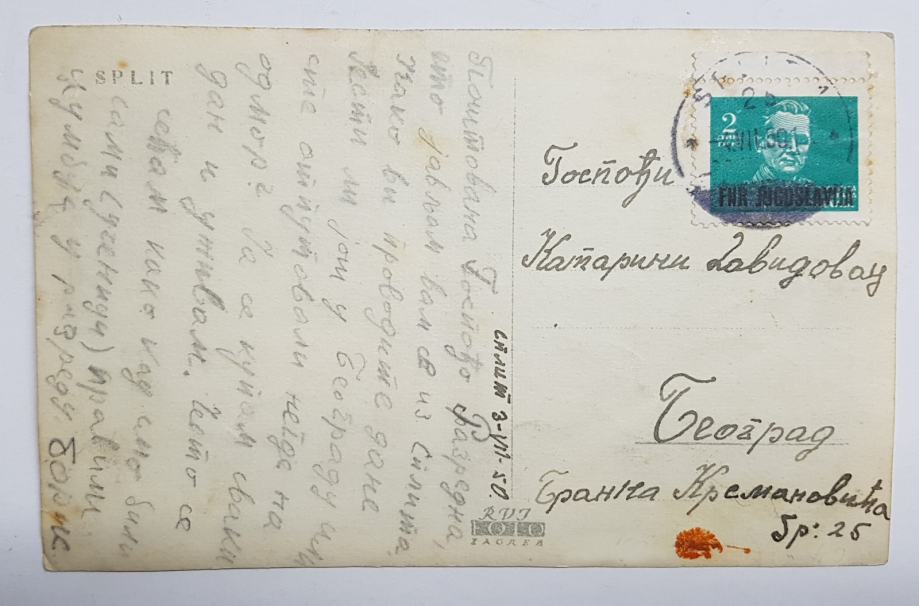 SPLIT
Сплит 3-VII-50.
Поштована Госпођо Разредна,
јављам вам се из Сплита,
како ви проводите дане
ли још у Београду или
сте отпутовали негде на
одмор? Ја се купам сваки
дан и уживам. Често се
сећам како кад смо били
сами (ученици) правили
у разреду
RVI
FOTO
ZAGREB
2
FNR JUGOSLAVIJA
Госпођи
Катарини Давидовац
Београд
Бранка Крсмановића
бр: 25